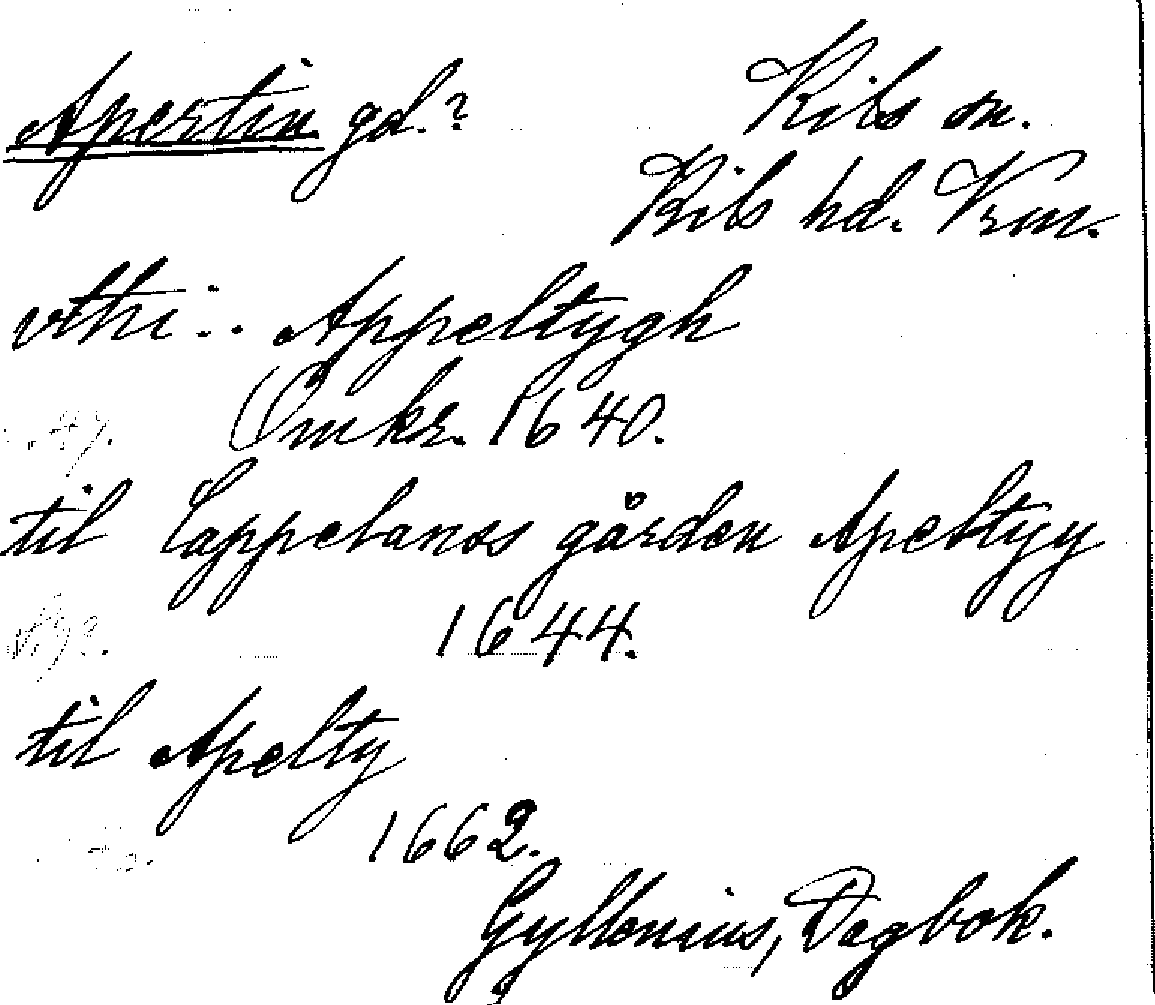 Apertin gd.? Kils sn.
Kils hd. Vrm.
vthi.. Appeltygh
Omkr. 1640.
til Cappelanes gården Apeltyy
1644.
til Apelty
1662.
Gyllenius, Dagbok.